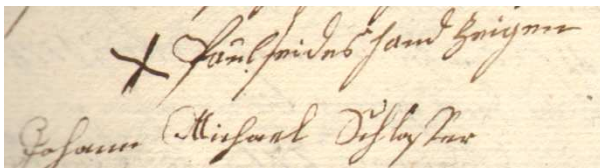 X Paulseides hand Zeigen
Johann Michael Schlosser